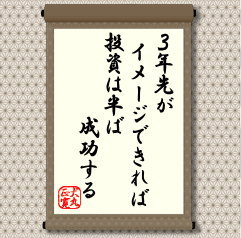 3年先が
イメージできれば
投資は半ば
成功する